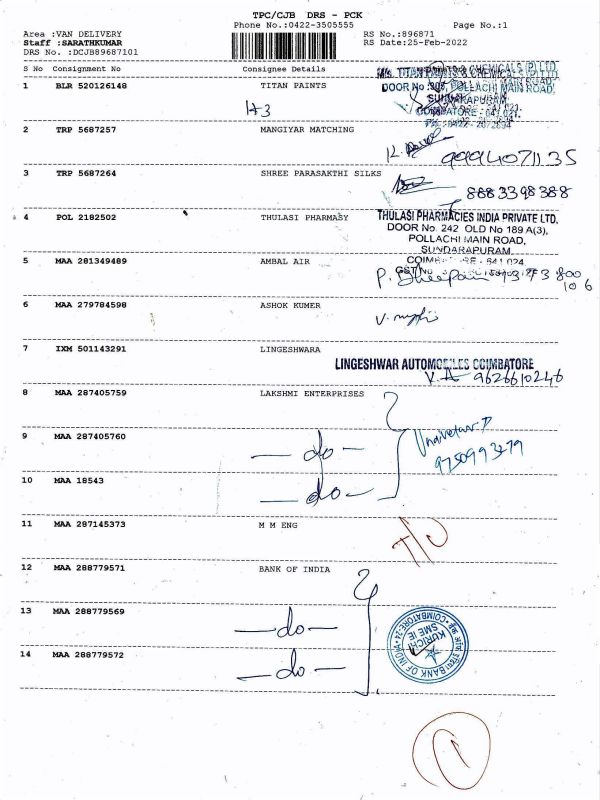 TPC/CJB DRS - PCK
Phone No.:0422-3505555 Page No.:1
Area :VAN DELIVERY RS No.:896871
Staff :SARATHKUMAR RS Date:25-Feb-2022
DRS No. :DCJB89687101
S No Consignment No Consignee Details
1 BLR 520126148 TITAN PAINTS
M/s. TITAN PAINTS & CHEMICALS (P) LTD
DOOR No :308, POLLACHI MAIN ROAD,
SUNDARAPURAM,
COIMBATORE - 641 021.
2 TRP 5687257 MANGIYAR MATCHING
9994071135
3 TRP 5687264 SHREE PARASAKTHI SILKS
8883398388
4 POL 2182502 THULASI PHARMASY
THULASI PHARMACIES INDIA PRIVATE LTD.
DOOR No. 242 OLD No 189 A(3),
POLLACHI MAIN ROAD,
SUNDARAPURAM,
COIMBATORE - 641 024.
GST No
5 MAA 281349489 AMBAL AIR
6 MAA 279784598 ASHOK KUMER
7 IXM 501143291 LINGESHWARA
LINGESHWAR AUTOMOBILES COIMBATORE
9626610246
8 MAA 287405759 LAKSHMI ENTERPRISES
9 MAA 287405760 — do —
9750993279
10 MAA 18543 — do —
11 MAA 287145373 M M ENG
12 MAA 288779571 BANK OF INDIA
13 MAA 288779569 — do —
BANK OF INDIA
COIMBATORE-24
KURICHI
SME IE
14 MAA 288779572 — do —
1